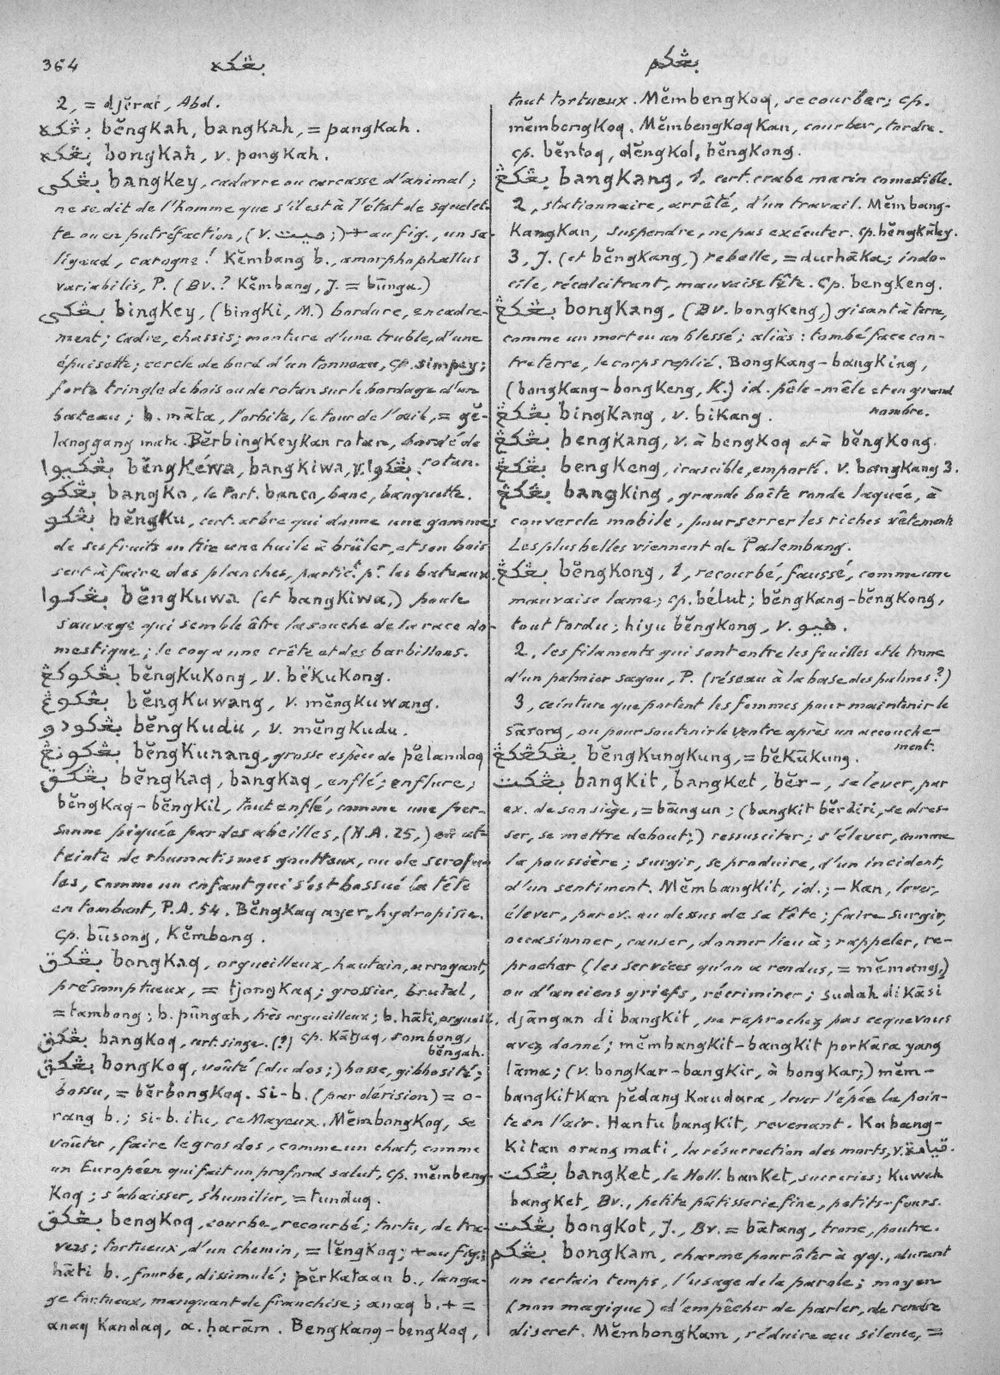 364
بڠكه
بڠكم
2, = djĕrat, Abd.
بڠكه bĕngkah, bangkah, = pangkah.
بڠكه bongkah, v. pongkah.
بڠكي bangkey, cadavre ou carcasse d'animal;
ne se dit de l'homme que s'il est à l'état de squelet-
te ou en putréfaction, (v. ميت;) + au fig., un sa-
ligaud, carogne! Kĕmbang b., amorphophallus
variabilis, P. (Bv.? Kĕmbang, J. = būnga.)
بڠكي bingkey, (bingki, M.) bordure, encadre-
ment; cadre, chassis; monture d'une truble, d'une
épuisette; cercle de bord d'un tonneau, cp. simpey;
forte tringle de bois ou de rotan sur le bordage d'un
bateau; b. māta, l'orbite, le tour de l'œil, = gĕ-
langgang mata. Bĕrbingkeykan rotan, bordé de
rotan.
بڠكيوا bĕngkéwa, bangkiwa, v. بڠكوا.
بڠكو bangko, le Port. banco, banc, banquette.
بڠكو bĕngku, cert. arbre qui donne une gomme;
de ses fruits on tire une huile à brûler, et son bois
sert à faire des planches, partic.t p.r les bateaux.
بڠكوا bĕngkuwa (et bangkiwa,) poule
sauvage qui semble être la souche de la race do-
mestique; le coq a une crête et des barbillons.
بڠكوكڠ bĕngkukong, v. bĕkukong.
بڠكوڠ bĕngkuwang, v. mĕngkuwang.
بڠكودو bĕngkudu, v. mĕngkudu.
بڠكونڠ bĕngkunang, grosse espèce de pĕlandoq
بڠكق bĕngkaq, bangkaq, enflé; enflure;
bĕngkaq-bĕngkil, tout enflé, comme une per-
sonne piquée par des abeilles, (H.A. 25,) ou at-
teinte de rhumatismes goutteux, ou de scrofu-
les, comme un enfant qui s'est bossué la tête
en tombant, P.A. 54. Bĕngkaq ayer, hydropisie.
Cp. būsong, kĕmbong.
بڠكق bongkaq, orgueilleux, hautain, arrogant,
présomptueux, = tjongkaq; grossier, brutal,
= tambong; b. pūngah, très orgueilleux; b. hāti, orgueil.
بڠكق bangkoq, cert. singe. (?) cp. Kātjaq, sombong,
bĕngah.
بڠكق bongkoq, voûté (du dos;) bosse, gibbosité;
bossu, = bĕrbongkoq. Si-b. (par dérision) = o-
rang b.; si-b. itu, ce Mayeux. Mĕmbongkoq, se
voûter, faire le gros dos, comme un chat, comme
un Européen qui fait un profond salut, cp. mĕmbeng-
koq; s'abaisser, s'humilier, = tunduq.
بڠكق bengkoq, courbe, recourbé; tortu, de tra-
vers; tortueux, d'un chemin, = lĕngkoq; + au fig.;
hāti b., fourbe, dissimulé; pĕrkataan b., langa-
ge tortueux, manquant de franchise; anaq b. + =
anaq kandaq, a. ḥarām. Bengkang-bengkoq,
tout tortueux. Mĕmbengkoq, se courber; cp.
mĕmbongkoq. Mĕmbengkoqkan, courber, tordre.
cp. bĕntoq, dĕngkol, bĕngkong.
بڠكڠ bangkang, 1, cert. crabe marin comestible.
2, stationnaire, arrêté, d'un travail. Mĕmbang-
kangkan, suspendre, ne pas exécuter. cp. bĕngkāley.
3, J. (et bĕngkang,) rebelle, = durhāka; indo-
cile, récalcitrant, mauvaise tête. Cp. bengkeng.
بڠكڠ bongkang, (Bv. bongkeng,) gisant à terre,
comme un mort ou un blessé; aliàs: tombé face con-
tre terre, le corps replié. Bongkang-bangking,
(bongkang-bongkeng, K.) id. pêle-mêle et en grand
nombre.
بڠكڠ bingkang, v. bikang.
بڠكڠ bengkang, v. à bengkoq et à bĕngkong.
بڠكڠ bengkeng, irascible, emporté. v. bangkang 3.
بڠكڠ bangking, grande boîte ronde laquée, à
couvercle mobile, pour serrer les riches vêtements
Les plus belles viennent de Palembang.
بڠكڠ bĕngkong, 1, recourbé, faussé, comme une
mauvaise lame; cp. bélut; bĕngkang-bĕngkong,
tout tordu; hiyu bĕngkong, v. هيو.
2, les filaments qui sont entre les feuilles et le tronc
d'un palmier sagou, P. (réseau à la base des palmes?)
3, ceinture que portent les femmes pour maintenir le
sārong, ou pour soutenir le ventre après un accouche-
ment.
بڠكڠكڠ bĕngkungkung, = bĕkūkung.
بڠكت bangkit, bangket, bĕr-, se lever, par
ex. de son siège, = bāngun; (bangkit bĕrdiri, se dres-
ser, se mettre debout;) ressusciter; s'élever, comme
la poussière; surgir, se produire, d'un incident,
d'un sentiment. Mĕmbangkit, id.; -kan, lever,
élever, par ex. au dessus de sa tête; faire surgir,
occasionner, causer, donner lieu à; rappeler, re-
procher (les services qu'on a rendus, = mĕmoneng,)
ou d'anciens griefs, récriminer; sudah di kāsi
djāngan di bangkit, ne reprochez pas ce que vous
avez donné; mĕmbangkit-bangkit porkāra yang
lāma; (v. bongkar-bangkir, à bongkar;) mĕm-
bangkitkan pĕdang kaudara, lever l'épée la poin-
te en l'air. Hantu bangkit, revenant. Kabang-
kitan orang mati, la résurrection des morts, v. قيامة.
بڠكت bangket, le Holl. banket, sucreries; kuweh
bangket, Bv., petite pâtisserie fine, petits-fours.
بڠكت bongkot, J., Bv. = bātang, tronc, poutre.
بڠكم bongkam, charme pour ôter à qq., durant
un certain temps, l'usage de la parole; moyen
(non magique) d'empêcher de parler, de rendre
discret. Mĕmbongkam, réduire au silence, =